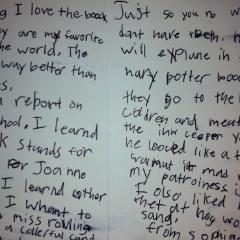 g I love the boook
y are my favorite
the world. The
way better than
s,
n report on
hool, I learnd
k stands for
For Joanne
I learnd other
I whant to
a miss rowling
a collerful
Just so you no w
dont have teeth.
will explane in
hary potter booo
they go to the
Cddren and meat
the inn ceeper y
he looced like a t
warnut it mad
my patroliness i
I olso liked
thet at hog wo
sand
from sophia